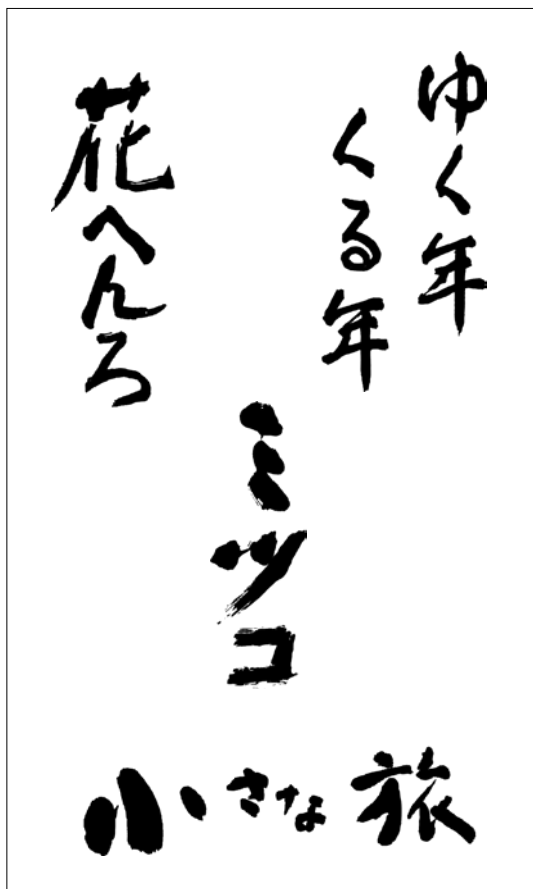 ゆく年
くる年
花へんろ
ミツコ
小さな旅